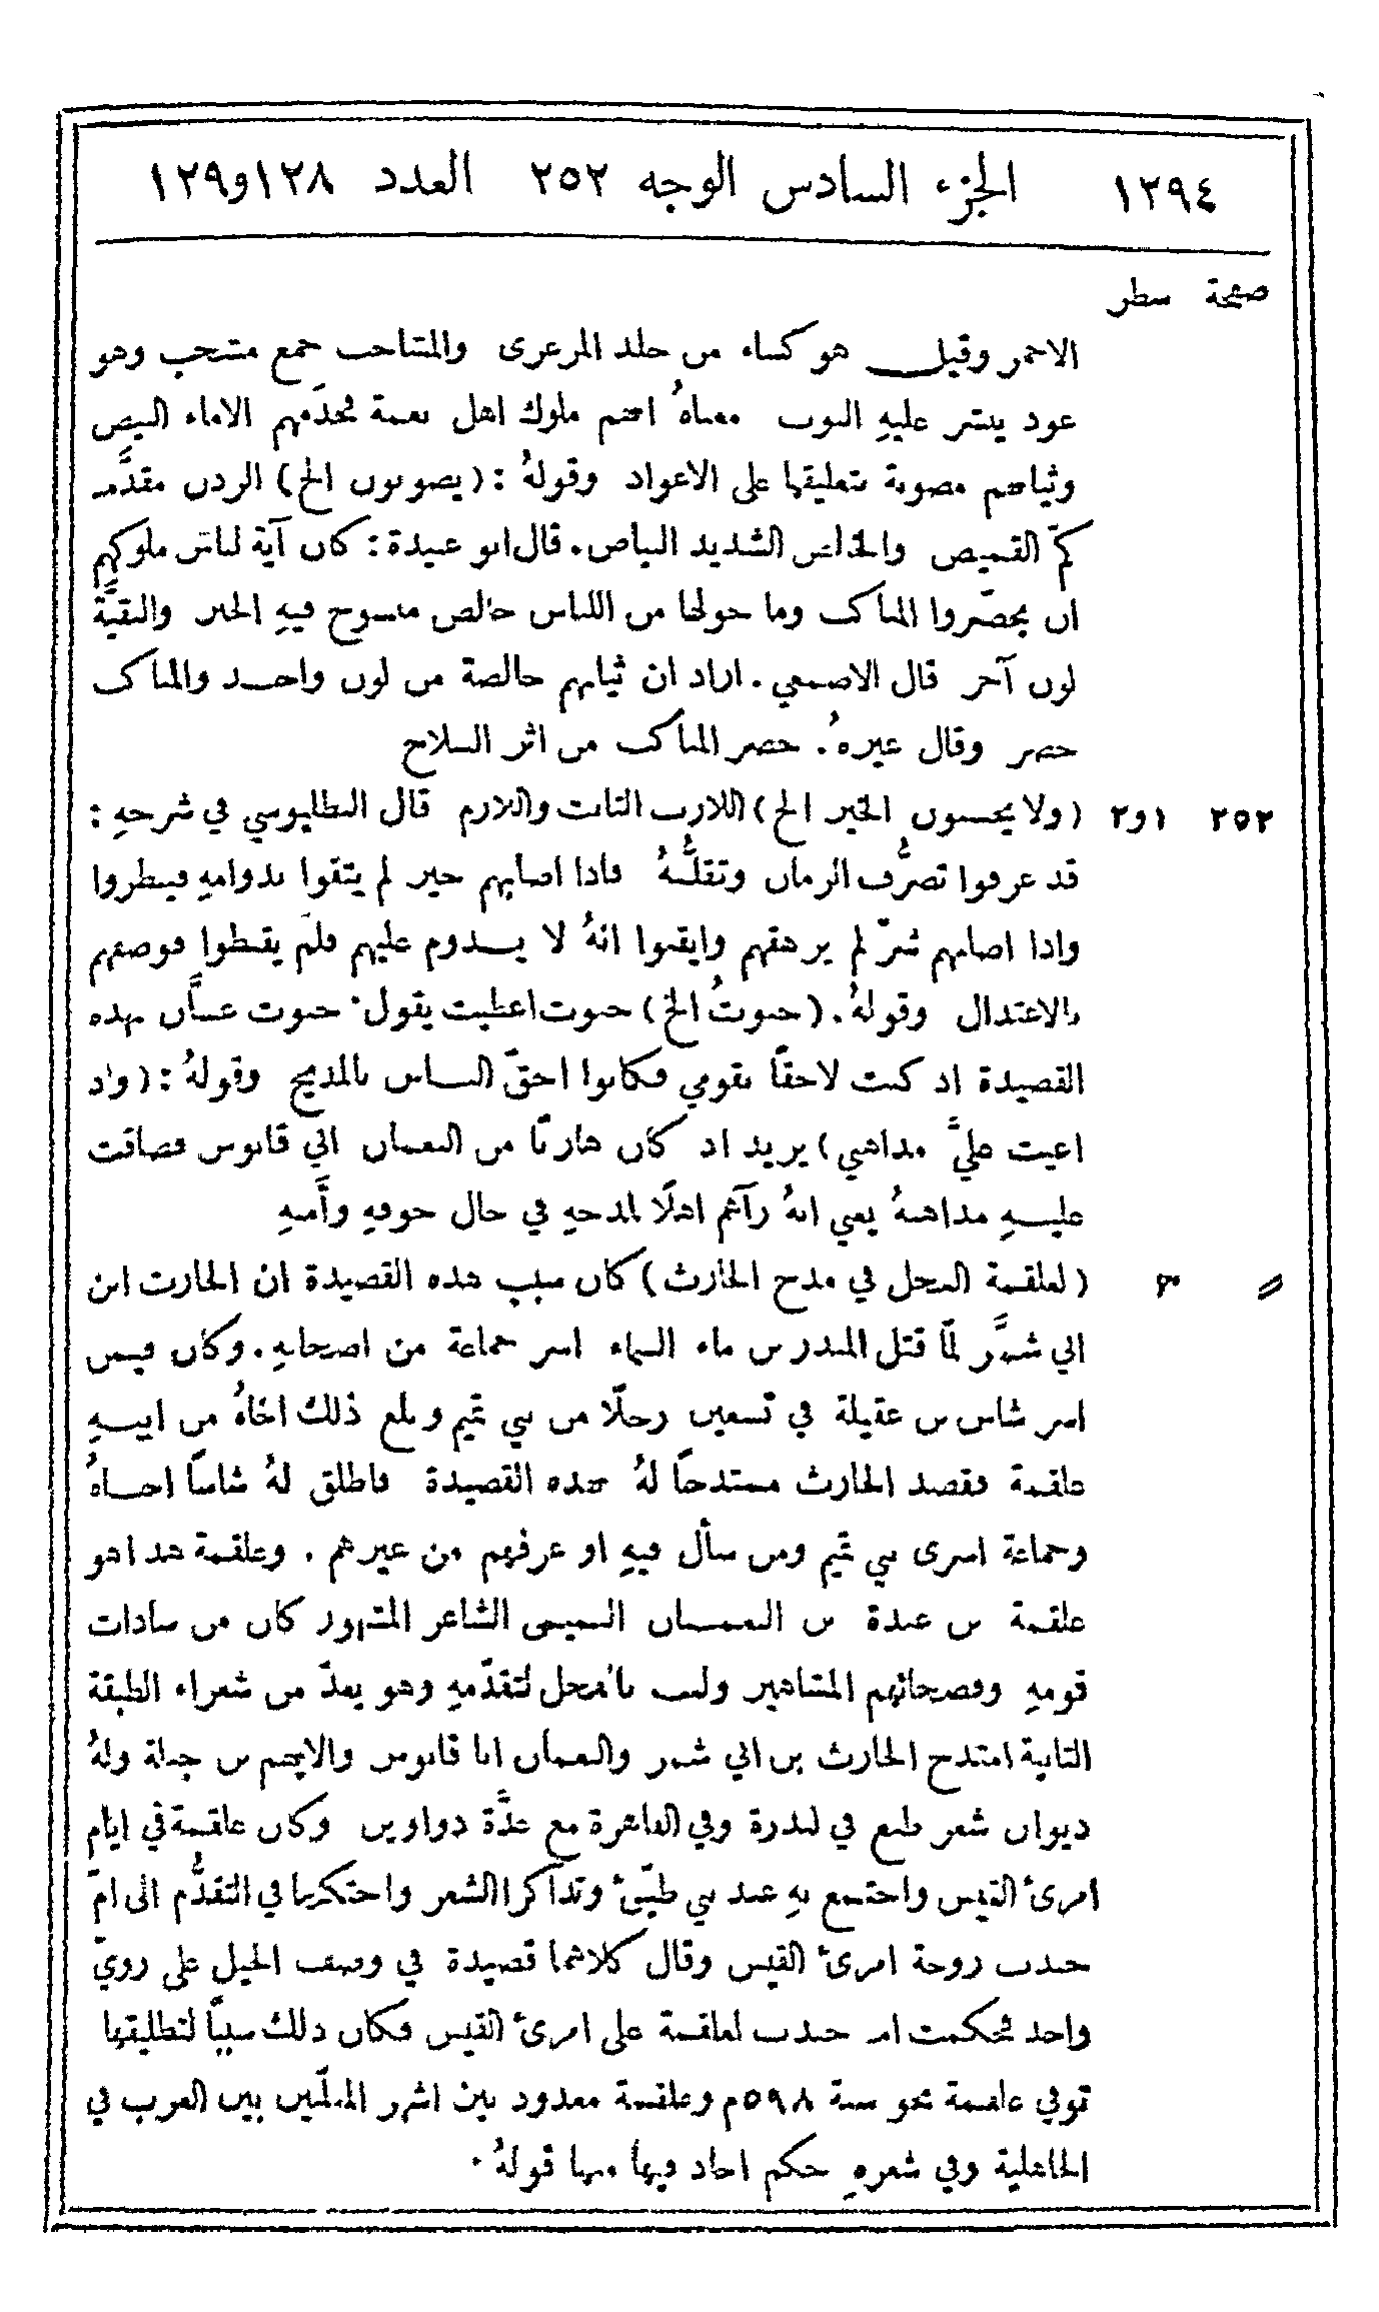 ١٣٩٤ الجزء السادس الوجه ٢٥٢ العدد ١٢٨ و١٢٩
صفحة سطر
الاحمر وقيل هو كساء من جلد المرعزى والمشاجب جمع مشجب وهو
عود ينشر عليهِ الثوب معناهُ انهم ملوك اهل نعمة تخدَمهم الاماء البيض
وثيابهم مصونة بتعليقها على الاعواد وقولهُ: (يصونون الخ) الردن مقدَّم
كمّ القميص والخالص الشديد البياض. قال ابو عبيدة: كان آية لباس ملوكهم
ان يخضّروا المناكب وما حولها من اللباس خالص منسوج فيهِ الحبر والبقيَّة
لون آخر قال الاصمعي. اراد ان ثيابهم خالصة من لون واحد والمناكب
خضر وقال غيرهُ. خضر المناكب من اثر السلاح
٢٥٢ ١و٢ (ولا يحسبون الخير الخ) اللازب الثابت واللازم قال البطليوسي في شرحهِ:
قد عرفوا تصرُّف الزمان وتقلُّبهُ فاذا اصابهم خير لم يثقوا بدوامهِ فيبطروا
واذا اصابهم شرّ لم يرهقهم وايقنوا انهُ لا يدوم عليهم فلم يقنطوا فوصفهم
بالاعتدال وقولهُ. (حبوتُ الخ) حبوت اعطيت يقول. حبوت غسَّان بهذه
القصيدة اذ كنت لاحقًا بقومي فكانوا احقّ الناس بالمديح وقولهُ: (واذ
اعيت عليَّ مذاهبي) يريد اذ كان هاربًا من النعمان ابي قابوس فضاقت
عليهِ مذاهبهُ يعني انهُ رآهم اهلًا لمدحهِ في حال خوفهِ وأَمنهِ
〃 ٣ (لعلقمة الفحل في مدح الحارث) كان سبب هذه القصيدة ان الحارث ابن
ابي شمَّر لمّا قتل المنذر بن ماء السماء اسر جماعة من اصحابهِ. وكان فيمن
اسر شاس بن عقيلة في تسعين رجلًا من بني تميم وبلغ ذلك اخاهُ من ابيهِ
علقمة فقصد الحارث ممتدحًا لهُ بهذه القصيدة فاطلق لهُ شاسًا اخاهُ
وجماعة اسرى بني تميم ومن سأل فيهِ او عرفهم من غيرهم. وعلقمة هذا هو
علقمة بن عبدة بن النعمان التميمي الشاعر المشهور كان من سادات
قومهِ وفصحائهم المشاهير ولقب بالفحل لتقدّمهِ وهو يعدّ من شعراء الطبقة
الثانية امتدح الحارث بن ابي شمر والنعمان ابا قابوس والايهم بن جبلة ولهُ
ديوان شعر طبع في لندرة وفي القاهرة مع عدَّة دواوين وكان علقمة في ايام
امرئ القيس واجتمع بهِ عند بني طيّئ وتذاكرا الشعر واحتكما في التقدُّم الى امّ
جندب زوجة امرئ القيس وقال كلاهما قصيدة في وصف الخيل على رويّ
واحد فحكمت ام جندب لعلقمة على امرئ القيس فكان ذلك سببًا لتطليقها
توفي علقمة نحو سنة ٥٩٨م وعلقمة معدود بين اشهر المعلّمين بين العرب في
الجاهلية وفي شعرهِ حكم اجاد فيها منها قولهُ.